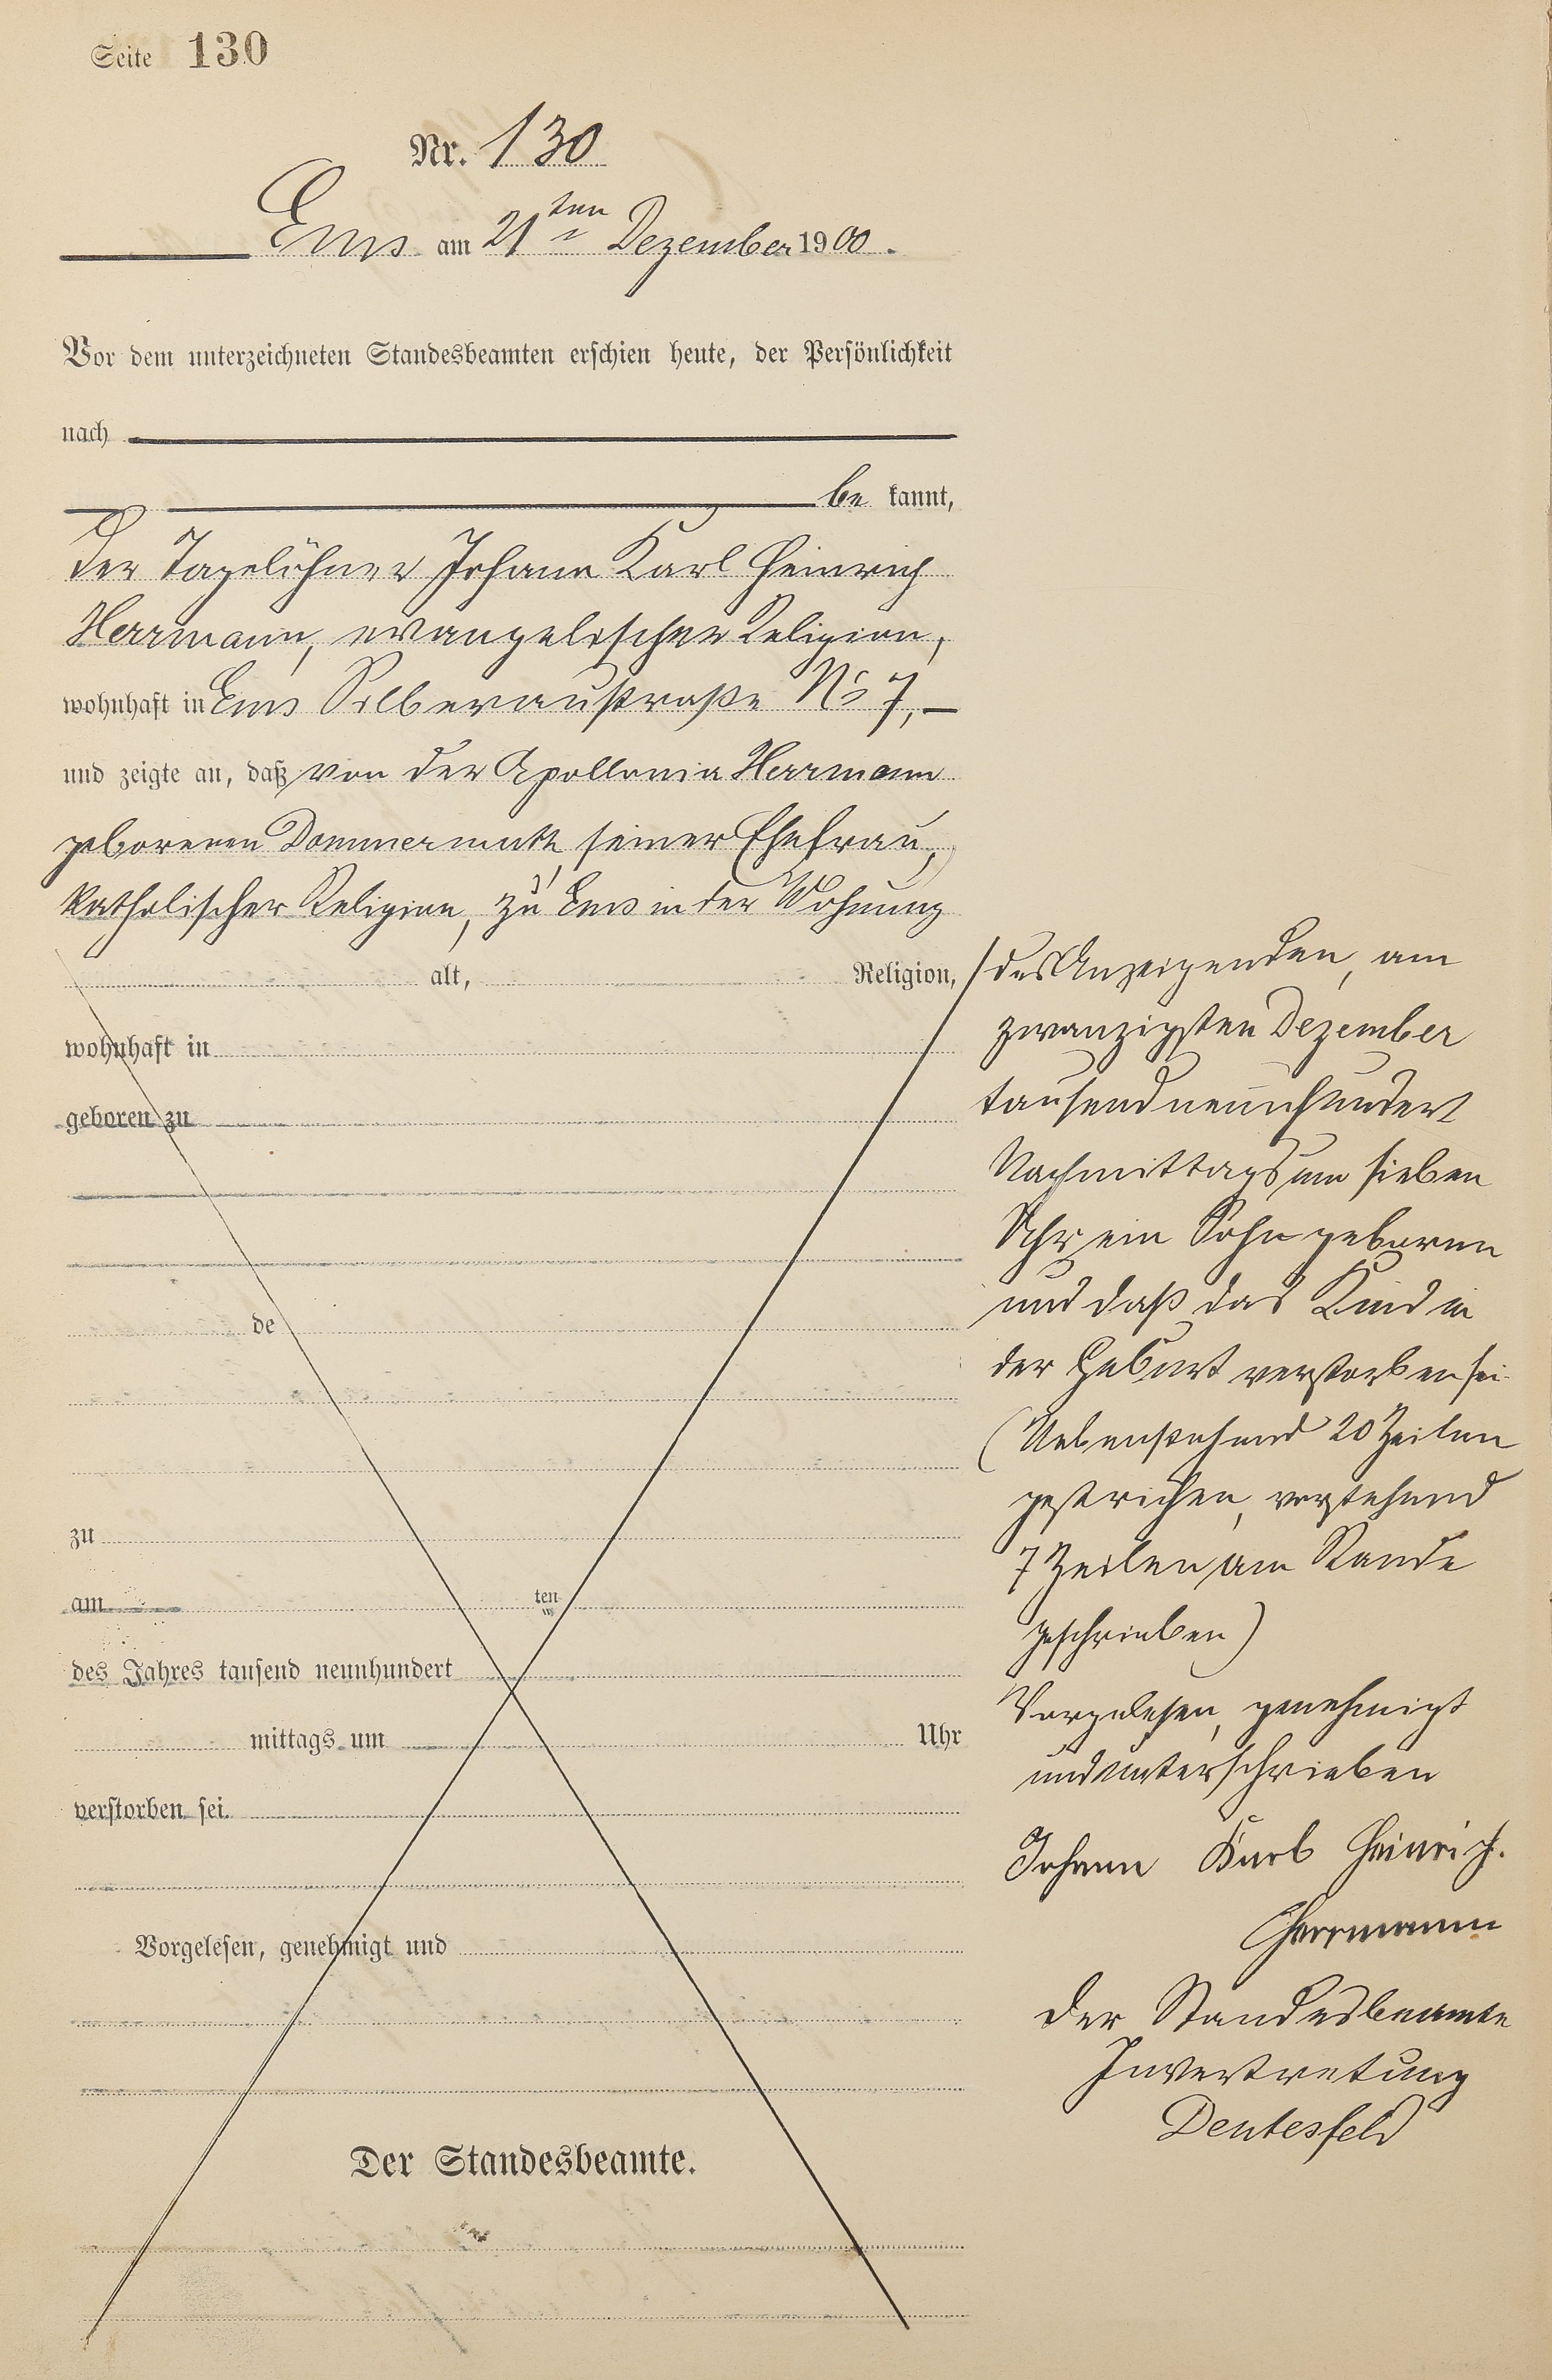 Seite 130
Nr. 130
Ems am 21ten Dezember 1900.
Vor dem unterzeichneten Standesbeamten erschien heute, der Persönlichkeit
nach
be kannt,
der Tagelöhner Johann Karl Heinrich
Herrmann, evangelischer Religion,
wohnhaft in Ems Silberaustraße No 7,
und zeigte an, daß von der Apollonia Herrmann
geborenen Dommermuth, seiner Ehefrau,
katholischer Religion, zu Ems in der Wohnung
alt, Religion,
wohnhaft in
geboren zu
de
zu
am ten
des Jahres tausend neunhundert
mittags um Uhr
verstorben sei.
Vorgelesen, genehmigt und
Der Standesbeamte.
/des Anzeigenden, am
zwanzigsten Dezember
tausendneunhundert
Nachmittags um sieben
Uhr ein Sohn geboren
und daß das Kind in
der Geburt verstorben sei.
(Nebenstehend 20 Zeilen
gestrichen, vorstehend
7 Zeilen am Rande
geschrieben)
Vorgelesen, genehmigt
und unterschrieben
Johann Karl Heinrich.
Herrmann
Der Standesbeamte
In Vertretung
Dentesfeld